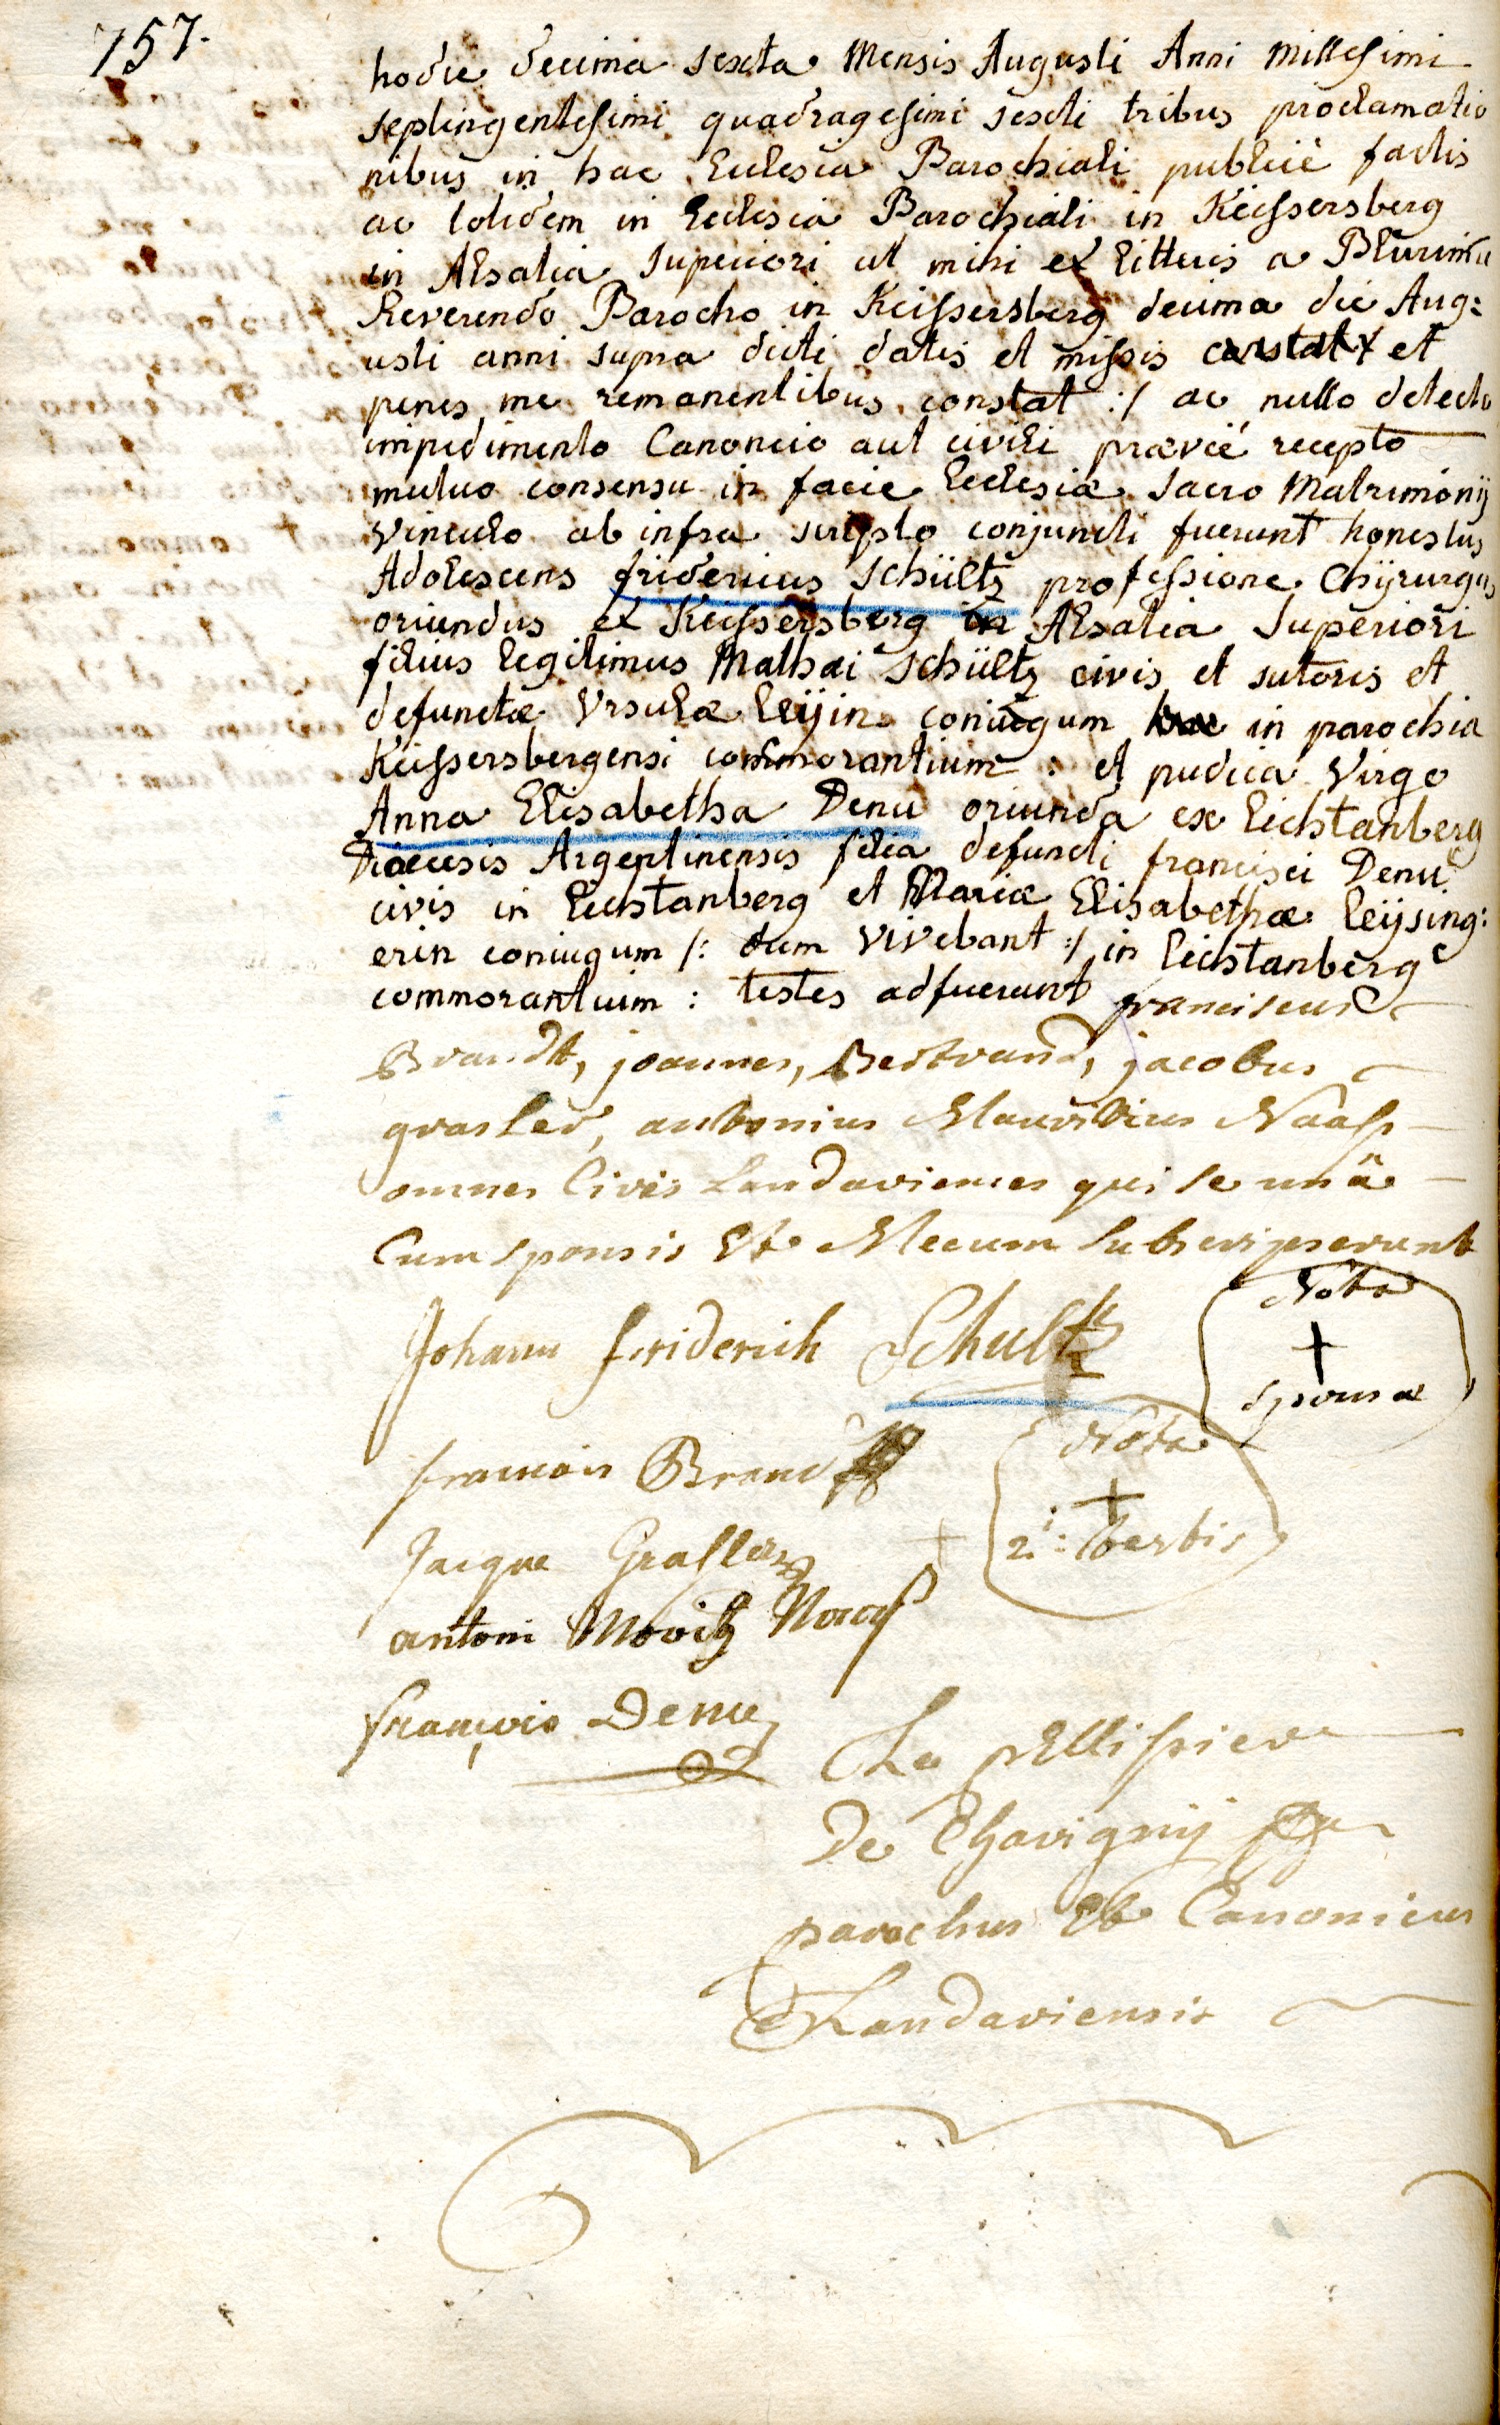 757.
hodie decima sexta Mensis Augusti Anni Millesimi
septingentesimi quadragesimi sexti tribus proclamatio
nibus in hac Ecclesia Parochiali publicè factis
ac totidem in Ecclesia Parochiali in Keissersberg
in Alsatia Superiori ut mihi ex litteris a Plurimu
Reverendo Parocho in Keissersberg decima die Aug:
usti anni supra dicti datis et missis et
penes me remanentibus constat :/ ac nullo detecto
impedimento Canonico aut civili prævie recepto
mutuo consensu in facie Ecclesiæ Sacro Matrimonij
Vinculo ab infra scripto conjuncti fuerunt honestus
Adolescens fridericus Schültz professione Chyrurgus
oriundus ex Keissersberg in Alsatia Superiori
filius legitimus Mathæi Schültz civis et sutoris et
defunctæ Ursulæ Leÿin coniugum in parochia
Keissersbergensi commorantium : et pudica Virgo
Anna Elisabetha Denu oriunda ex Lichtanberg
Diœcesis Argentinensis filia defuncti francisci Denu
civis in Lichtanberg et Mariæ Elisabethæ Leÿsing:
erin coniugum /: dum vivebant :/ in Lichtanberg
commorantium : testes adfuerunt franciscus
Brandt, joannes, Bertrand, jacobus
grasler, antonius Mauritius Naass
omnes Cives Landavienses qui se unâ
Cum sponsis Et Mecum Subscripserunt
Johann friderich Schultz
Nota
+
sponsæ
francois Brand
Nota
+
2i: testis
Jacque Grasler
+
antoni Moritz Naass
françois Denu
La pellissier
De Chavignij
parochus Et Canonicus
Landaviensis